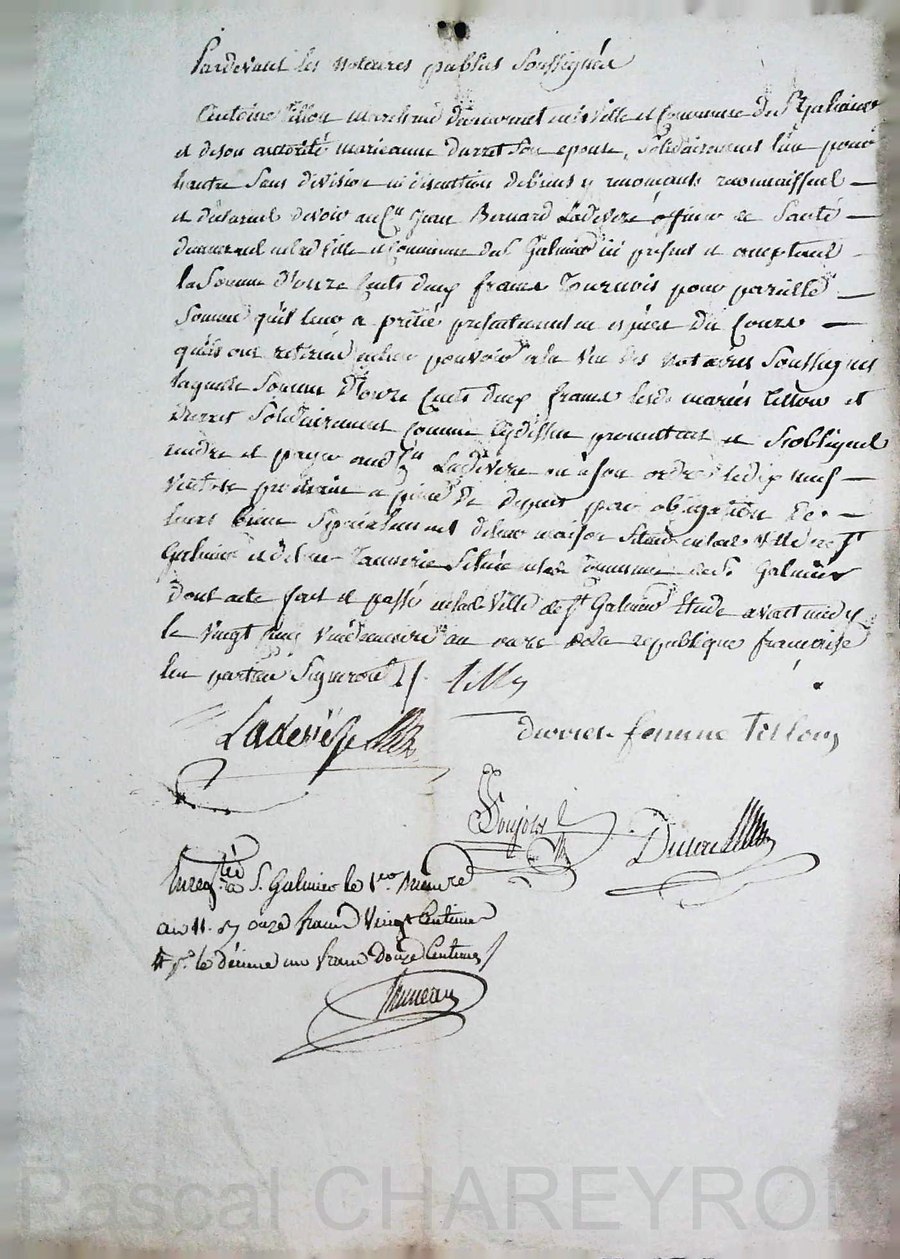 Pardevant les Notaires publics Soussignés
Antoine Tillon marchand demeurant en la Ville et Commune de St Galmier
et de son autorité marieanne durret Son epouse, Solidairement l'un pour
lautre Sans division ni discution de biens y renonçants reconnaissent —
et déclarent devoir au Cn Jean Bernard Ladevèze officier de Santé —
demeurant en lad Ville et Commune de St Galmier ici présent et acceptant —
la Somme d'onze Cents deux francs Tournois pour pareille —
Somme qu'il leur a prêtée présentement en espèces du Cours —
qu'ils ont retirée à leur pouvoir à la Vue des Notaires Soussignés
laquelle Somme d'onze Cents deux francs lesds mariés Tillon et
Durret Solidairement Comme Cydessus promettent et S'obligent
rendre et payer aud Cn Ladevèze ou à Son ordre le dix neuf —
Ventose prochain a peine de depens par obligation de —
leurs biens Spécialement de leur maison Située en lade Ville de St
Galmier et de leur Tannerie Située en lade Commune de St Galmier
dont acte fait et passé en lade Ville de St Galmier Etude avant midy
le Vingt cinq Vendemiaire an onze de la republique française
les parties Signeront
Tillon
Ladevèze
durret femme Tillon
Enregtré à St Galmier le 1er Brumaire
an 11. Rç onze francs Vingt Centimes
et pr le décime un franc Douze Centimes